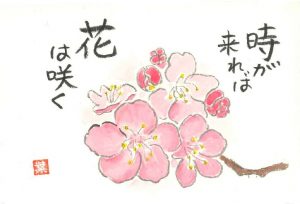 時が
来れば
花
は咲く
葉